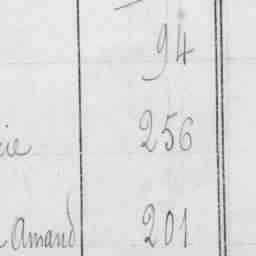 94
256
Amand 201